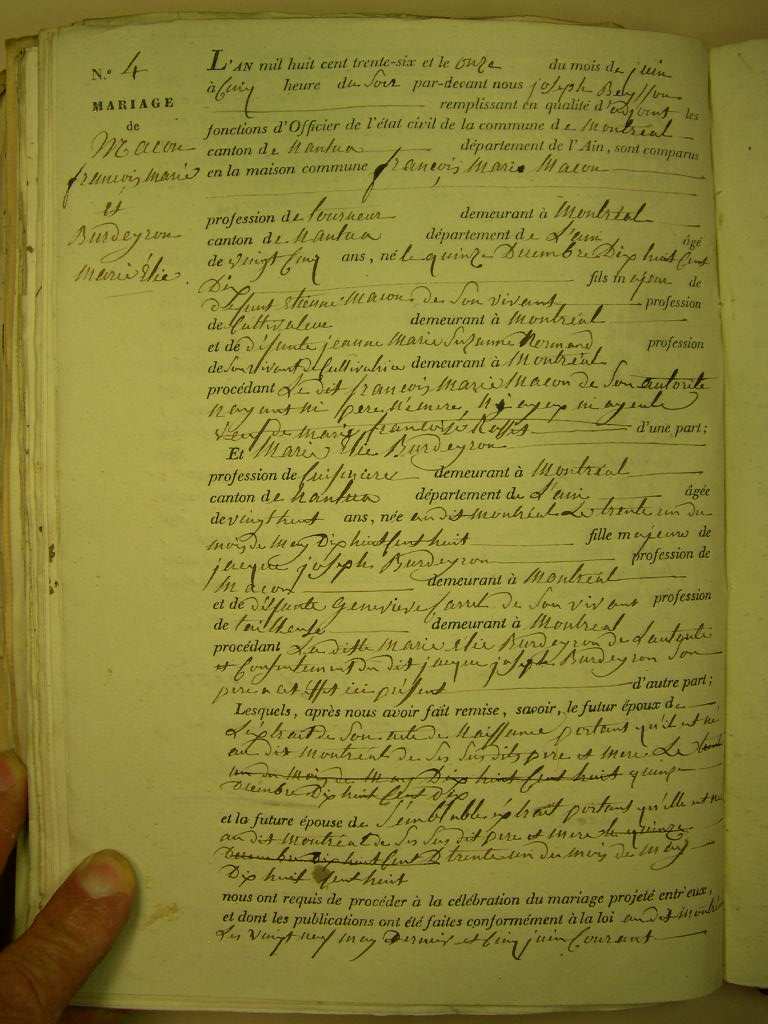 N.° 4
MARIAGE
de
Macon
françois marie
et
Burdeyron
Marie Élie
L'AN mil huit cent trente-six et le onze du mois de juin
à Cinq heure du Soir par-devant nous joseph Beysson
remplissant en qualité d'adjoint les
fonctions d'Officier de l'état civil de la commune de Montréal
canton de Nantua département de l'Ain, sont comparus
en la maison commune françois Marie Macon
profession de tourneur demeurant à Montréal
canton de Nantua département de L'ain âgé
de vingt Cinq ans, né le quinze Décembre Dix huit Cent
Dix fils majeur de
défunt Etienne Macon de Son vivant profession
de Cultivateur demeurant à Montréal
et de défunte jeanne Marie Suzanne Normand profession
de Son vivant de Cultivatrice demeurant à Montréal
procédant Le dit françois Marie Macon de Son autorité
nayant ni pere ni mere, ni ayeux ni ayeule
veuf de marie françoise d'une part;
Et Marie Élie Burdeyron
profession de Cuisiniere demeurant à Montréal
canton de Nantua département de L'ain âgée
de vingt huit ans, née au dit Montréal Le trente un du
mois de May Dix huit Cent huit fille majeure de
jacque joseph Burdeyron profession de
Macon demeurant à Montréal
et de défunte Genevieve Carrel de Son vivant profession
de tailleuse demeurant à Montréal
procédant La ditte Marie Elie Burdeyron de L'autorité
et Consentement du dit jacque joseph Burdeyron Son
pere a cet Effet ici présent d'autre part;
Lesquels, après nous avoir fait remise, savoir, le futur époux de
L'extrait de Son acte de Naissance portant qu'il est né
au dit Montréal de Ses Susdits pere et mere Le trente
un du Mois de May Dix huit Cent huit quinze
Décembre Dix huit Cent Dix
et la future épouse de Semblable extrait portant qu'elle est née
au dit Montréal de Ses Susdit pere et mere le quinze
Décembre Dix huit Cent D trente un du mois de May
Dix huit Cent huit
nous ont requis de procéder à la célébration du mariage projeté entr'eux,
et dont les publications ont été faites conformément à la loi au dit Montréal
Les vingt neuf may Dernier et Cinq juin Courant